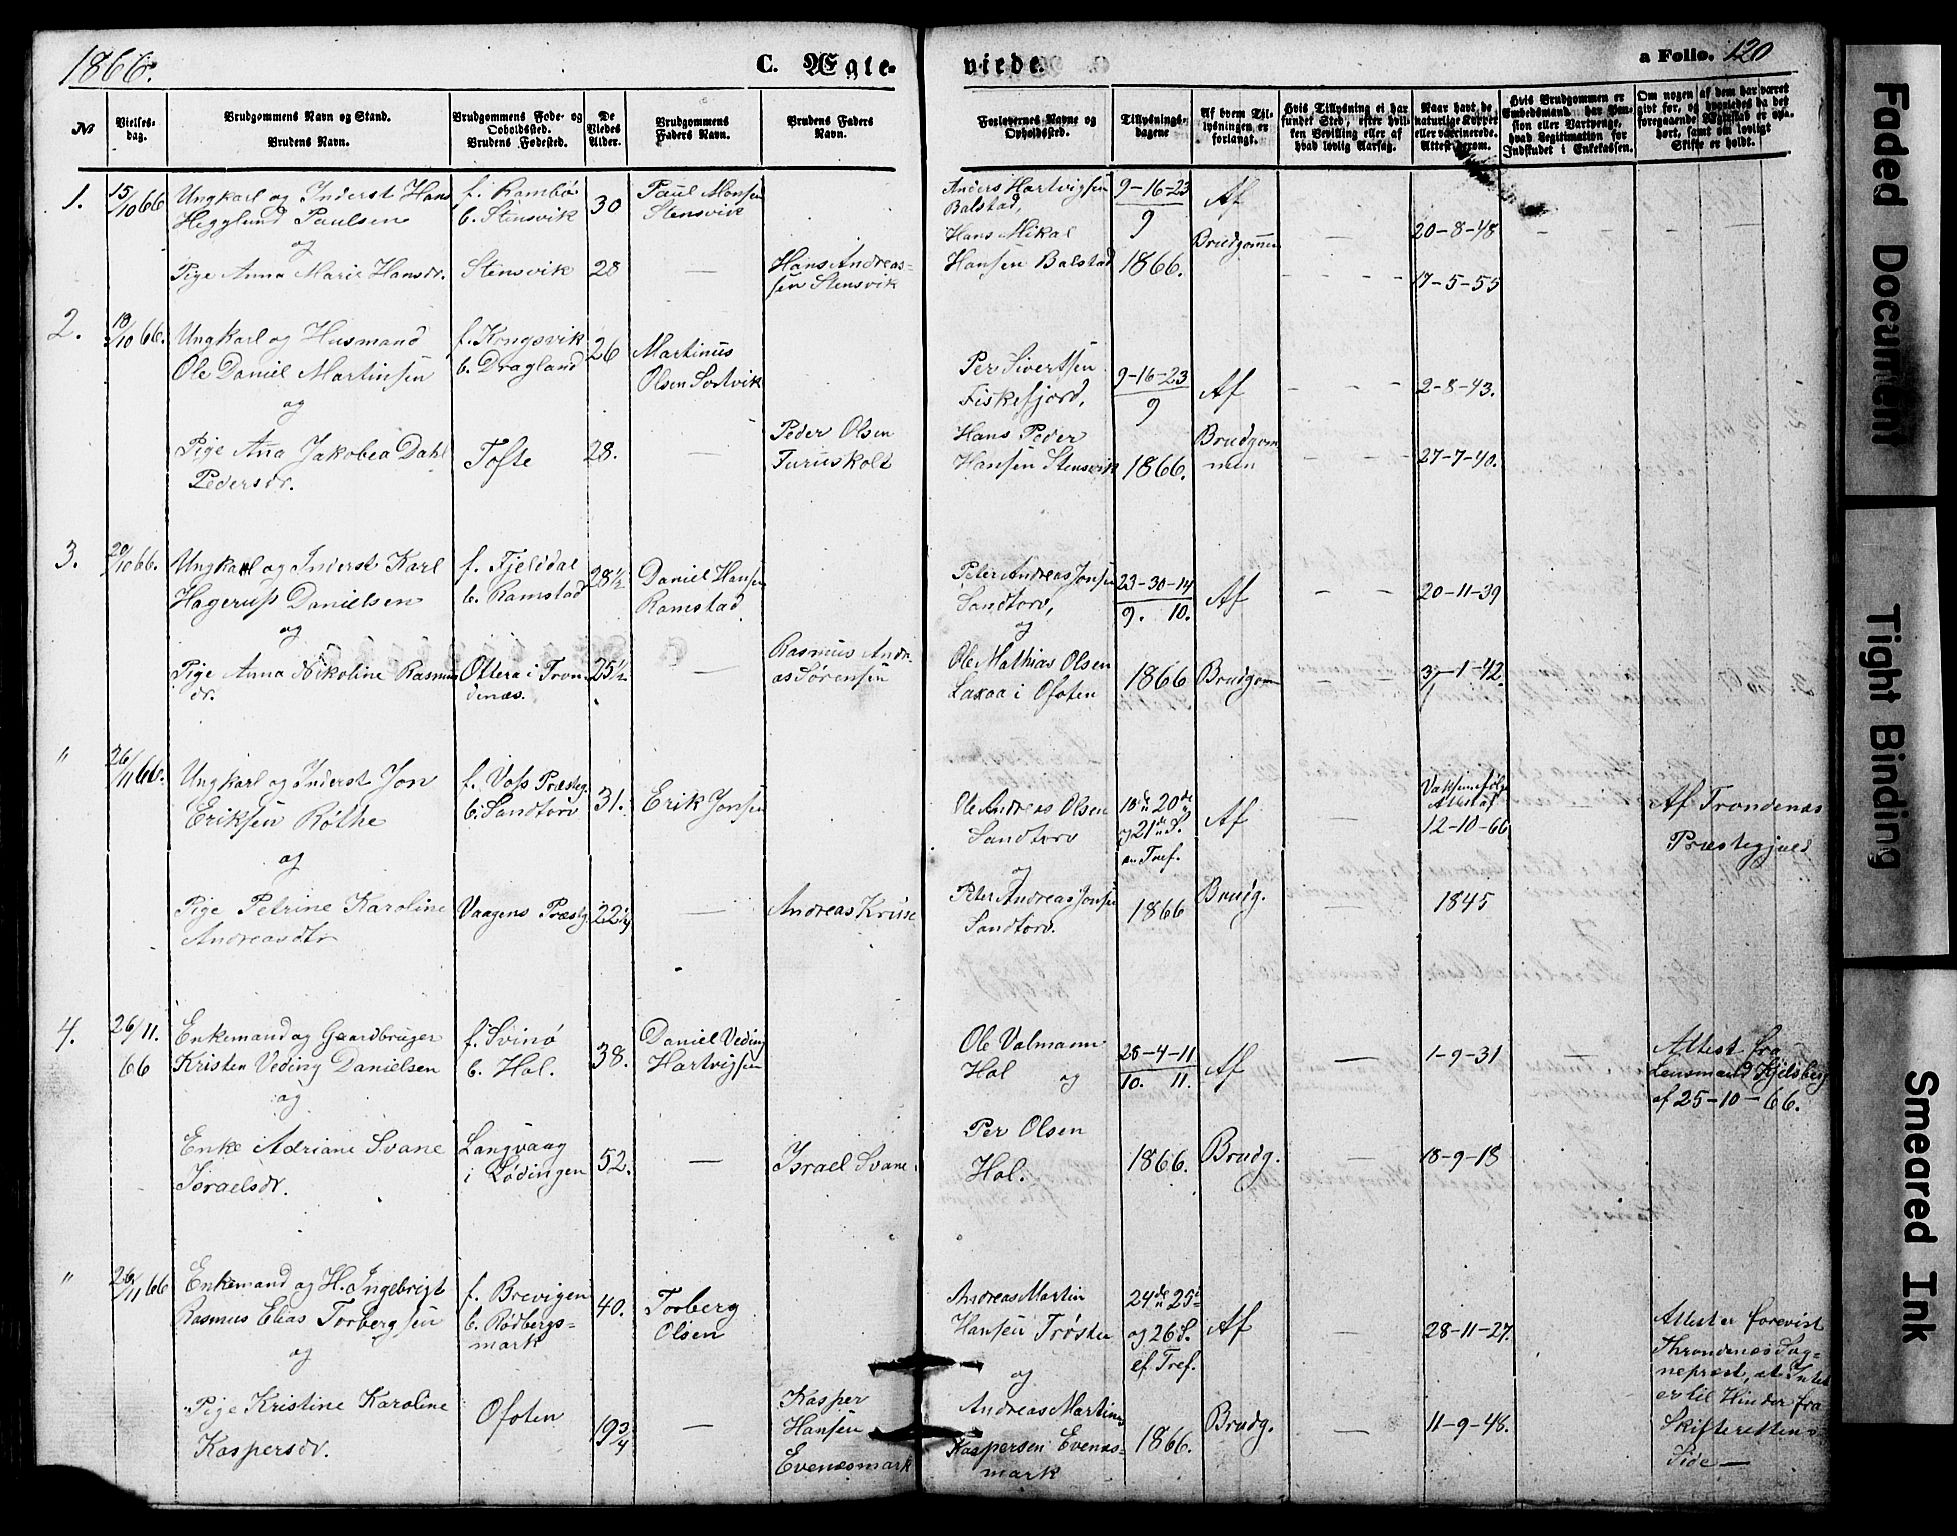 1866.
C. Ægte-
viede.
a Folio. 120
№
Vielses-
dag.
Brudgommens Navn og Stand.
Brudens Navn.
Brudgommens Føde- og
Opholdssted.
Brudens Fødested.
De
Viedes
Alder.
Brudgommens
Faders Navn.
Brudens Faders
Navn.
Forlovernes Navne og
Opholdssted.
Tillysnings-
dagene
Af hvem Til-
lysningen er
forlangt.
Hvis Tillysning ei har
fundet Sted, efter hvil-
ken Bevilling eller af
hvad lovlig Aarsag.
Naar havt de
naturlige Kopper
eller vaccinerede.
Attest derom.
Hvis Brudgommen er
Embedsmand, har Pen-
sion eller Vartpenge,
hvad Legitimation for
Indskudet i Enkekassen.
Om nogen af dem har været
gift før, og hvorledes da det
foregaaende Ægteskab er op-
hørt, samt om lovligt
Skifte er holdt.
1.
15/10 66
Ungkarl og Inderst Hans
Hegglund Paulsen
og
Pige Anna Marie Hansdr.
f. Rambø
b. Stensvik
Stensvik
30
28
Paul Monsen
Stensvik
—
Hans Andreas-
sen Stensvik
Anders Hartvigsen
Balstad,
Hans Mikal
Hansen Balstad
9-16-23
9
1866.
Af
Brudgommen
20-8-48
17-5-55
2.
18/10 66.
Ungkarl og Husmand
Ole Daniel Martinsen
og
Pige Ana Jakobea Dahl
Pedersdr.
f. Kongsvik
b. Dragland
Tofte
26
28.
Martinus
Olsen Sortvik
—
Peder Olsen
Per Sivertsen
Fiskefjord,
Hans Peder
Hansen Stensvik
9-16-23
9
1866.
Af
Brudgom
men
2-8-43.
27-7-40.
3.
20/10 66.
Ungkarl og Inderst Karl
Hagerup Danielsen
og
Pige Anna Nikoline Rasmus
dr.
f. Fjelddal
b. Ramstad
Ottera i Tron
denæs.
28½
25½
Daniel Hansen
Ramstad
—
Rasmus Andr-
as Sørensen
Peter Andreas Jonsen
Sandtorv,
og
Ole Mathias Olsen
Laxaa i Ofoten
23-30-14
9. 10.
1866
Af
Brudgom
20-11-39
"
26/11 66.
Ungkarl og Inderst Jon
Eriksen Røthe
og
Pige Petrine Karoline
Andreasdtr
f. Voss Præsteg.
b. Sandtorv
Vaagens Præstg.
31.
Erik Jonsen
—
Andreas Kruse
Ole Andreas Olsen
Sandtorv
og
Peter Andreas Jonsen
Sandtorv.
og 21de S.
en Tref.
1866
Af
Brudg.
12-10-66
1845
Af Trondenæs
Præstegjæld
4.
26/11.
66
Enkemand og Gaardbruger
Kristen Veding Danielsen
og
Enke Adriane Svane
Israelsdr.
f. Svinø
b. Hol.
Langvaag
i Lødingen
38.
52.
Daniel Veding
Hartvigsen
—
Israel Svane
Ole Valmann
Hol og
Per Olsen
Hol.
28-4-11
10. 11.
1866.
Af
Brudg.
1-9-31
18-9-18
Attest fra
Lensmand Kjelsberg
af 25-10-66.
"
26/11 66
Enkemand og H. Ingebrigt
Rasmus Elias Torbergsen
og
Pige Kristine Karoline
Kaspersdr.
f. Brevigen
b. Rødbergs-
mark
Ofoten
40.
19¾
Torberg
Olsen
—
Kasper
Hansen
Evenæsmark
Andreas Martin
Hansen Trøsten
og
Andreas Martinus
Kaspersen Evenæs-
mark
24de 25de
og 26 S.
ef. Tref.
1866.
Af
Brudg.
28-11-27.
11-9-48.
Attest er forevist
Throndenæs Sog-
nepræst, at Intet
er til Hinder fra
Skifterettens
Side —
Faded Document
Tight Binding
Smeared Ink